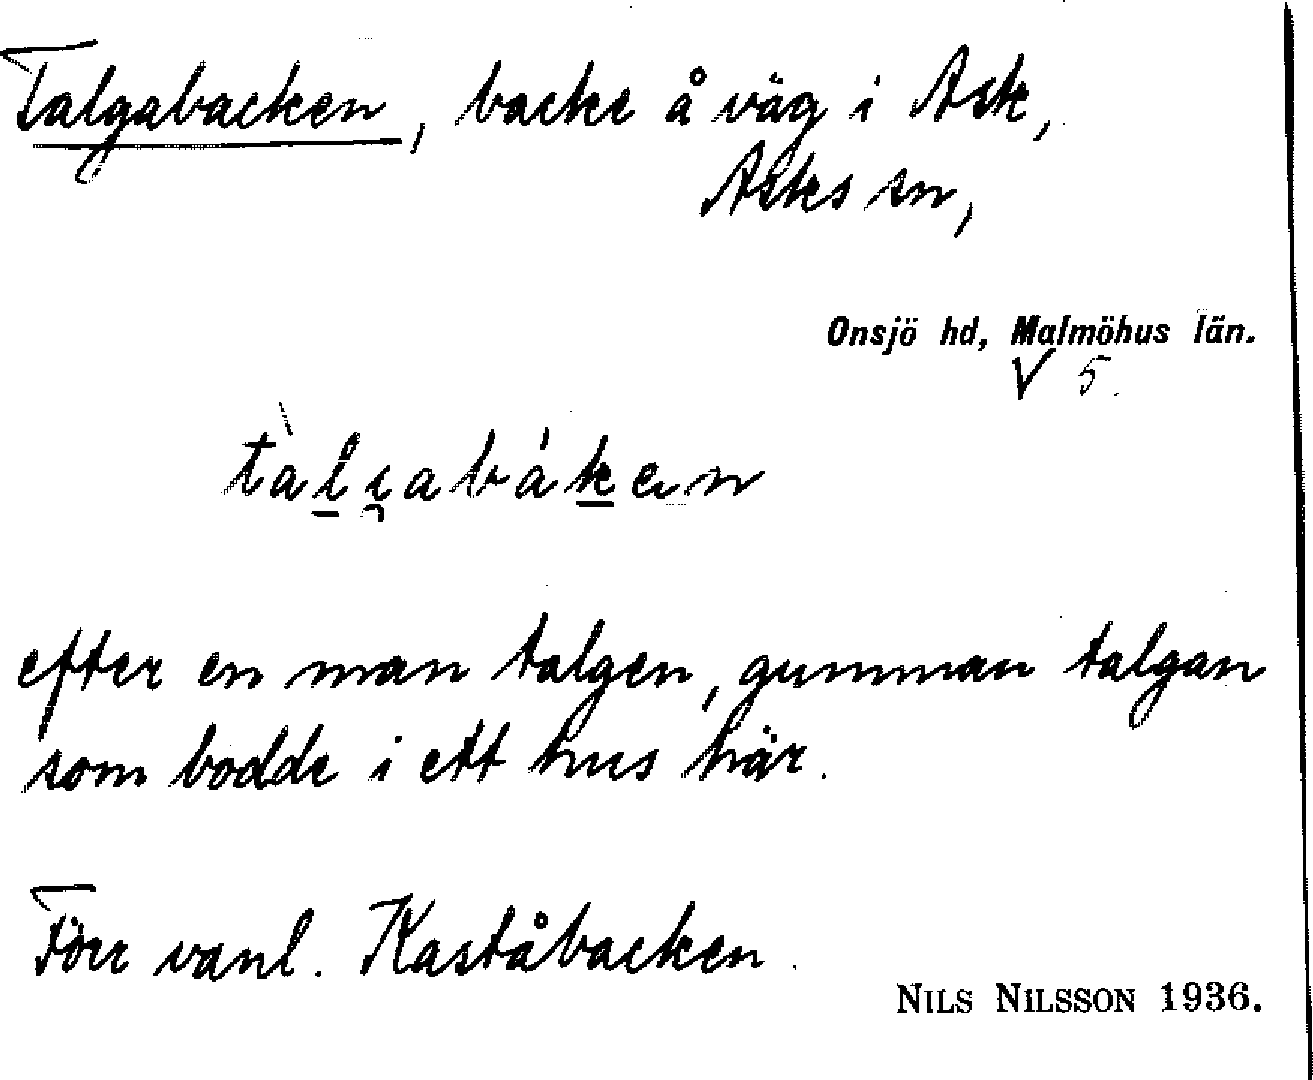 Talgabacken, backe å väg i Ask,
Asks sn,
Onsjö hd, Malmöhus län.
V 5.
efter en man talgen, gumman talgan
som bodde i ett hus här.
Förr vanl. Kaståbacken.
NILS NILSSON 1936.